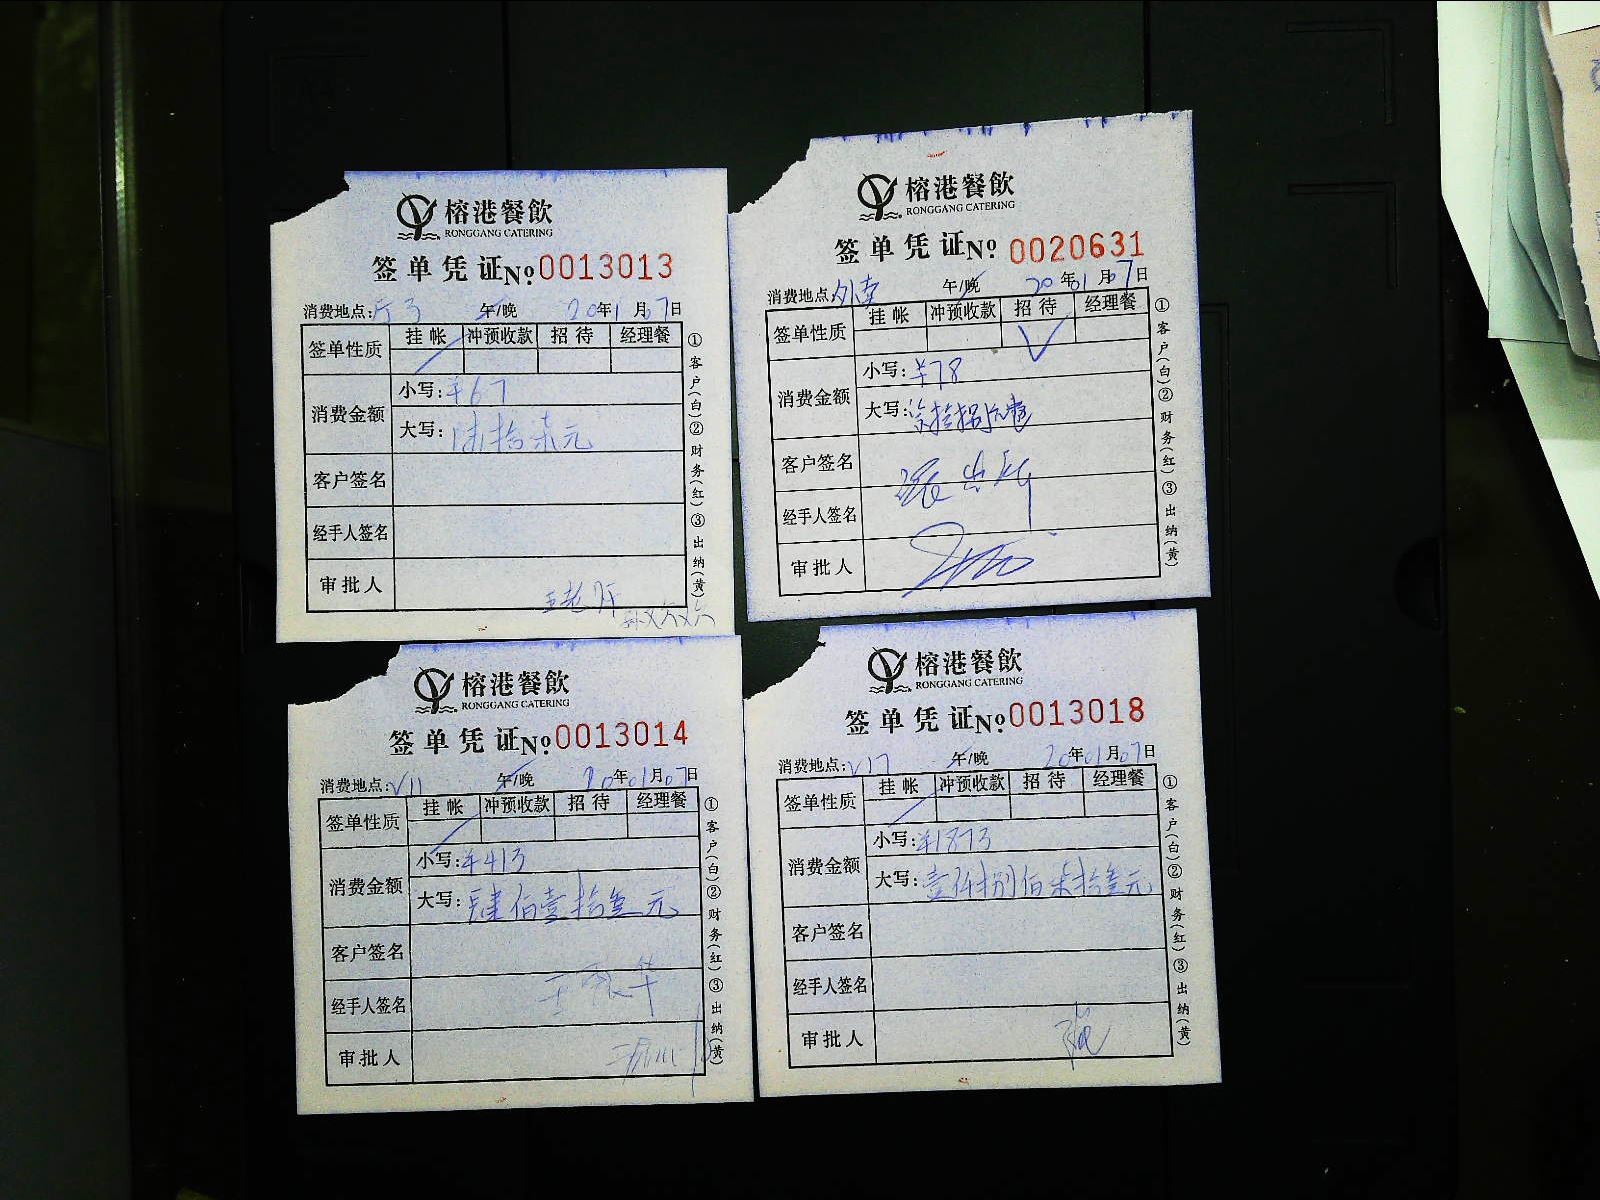 榕港餐飲
RONGGANG CATERING
签单凭证 No. 0013013
消费地点:厅3 午/晚 20年1月07日
签单性质 挂帐 冲预收款 招待 经理餐
消费金额 小写:¥67
大写:陆拾柒元
客户签名
经手人签名
审批人
①客户(白)②财务(红)③出纳(黄)
榕港餐飲
RONGGANG CATERING
签单凭证 No. 0020631
消费地点:外卖 午/晚 20年01月07日
签单性质 挂帐 冲预收款 招待 经理餐
消费金额 小写:¥78
大写:
客户签名
经手人签名
审批人
①客户(白)②财务(红)③出纳(黄)
榕港餐飲
RONGGANG CATERING
签单凭证 No. 0013014
消费地点:V11 午/晚 20年01月07日
签单性质 挂帐 冲预收款 招待 经理餐
消费金额 小写:¥413
大写:肆佰壹拾叁元
客户签名
经手人签名
审批人
①客户(白)②财务(红)③出纳(黄)
榕港餐飲
RONGGANG CATERING
签单凭证 No. 0013018
消费地点:V17 午/晚 20年01月07日
签单性质 挂帐 冲预收款 招待 经理餐
消费金额 小写:¥1873
大写:壹仟捌佰柒拾叁元
客户签名
经手人签名
审批人
①客户(白)②财务(红)③出纳(黄)